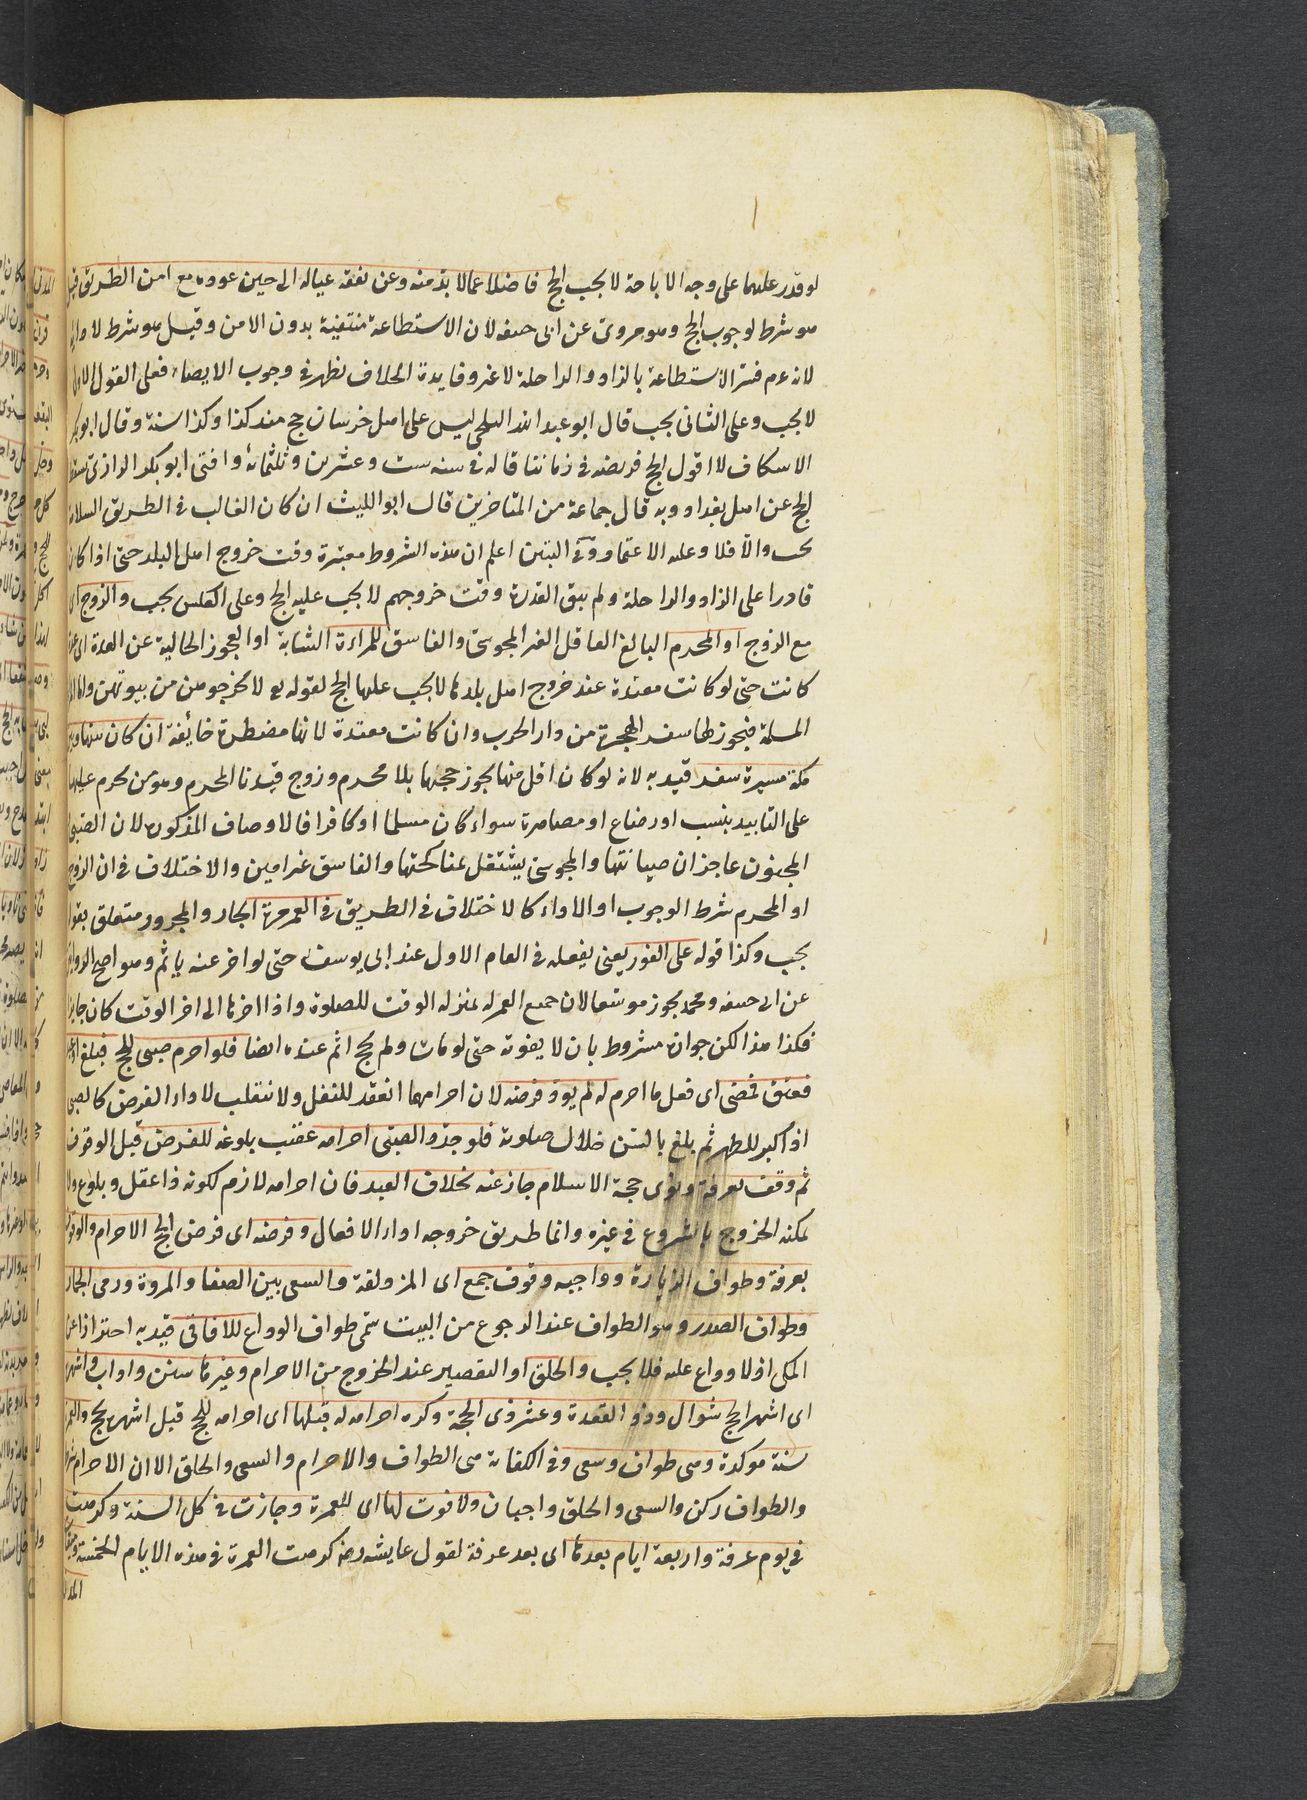 لو قدر عليهما على وجه الاباحة لا يجب الحج فاضلا عما لا بد منه وعن نفقة عياله الى حين عوده مع امن الطريق قيل
هو شرط لوجوب الحج وهو مروى عن ابى حنيفه لان الاستطاعة منتفية بدون الامن وقيل هو شرط لادائها
لانه عم فسر الاستطاعة بالزاد والراحلة لا غير وفايدة الخلاف تظهر في وجوب الايصاء فعلى القول الاول
لا يجب وعلى الثانى يجب قال ابو عبد الله البلخى ليس على اهل خرسان حج منذ كذا وكذا سنة وقال ابو بكر
الاسكاف لا اقول الحج فريضه فى زماننا قاله فى سنه ست وعشرين وثلثمائة وافتى ابو بكر الرازى بسقوط
الحج عن اهل بغداد وبه قال جماعة من المتاخرين قال ابو الليث ان كان الغالب فى الطريق السلامة
يجب والا فلا وعليه الاعتماد وفى التبيين اعلم ان هذه الشروط معتبرة وقت خروج اهل البلد حتى اذا كان
قادرا على الزاد والراحلة ولم يبق القدرة وقت خروجهم لا يجب عليه الحج وعلى العكس يجب والزوج اى
مع الزوج او المحرم البالغ العاقل الغير المجوسى والفاسق للمراءة الشابة او العجوز الخالية عن العدة اى عدة
كانت حتى لو كانت معتدة عند خروج اهل بلدها لا يجب عليها الحج لقوله تع لا تخرجوهن من بيوتهن واما
المسلمة فيجوز لها سفر الهجرة من دار الحرب وان كانت معتدة لانها مضطرة خائفة ان كان بينها وبين
مكة مسيرة سفر قيد به لانه لو كان اقل منها يجوز حجها بلا محرم وزوج قيدنا المحرم وهو من يحرم عليها
على التابيد بنسب او رضاع او مصاهرة سواء كان مسلما او كافرا فالاوصاف المذكورة لان الصبى
المجنون عاجزان صيانتها والمجوسى يشتغل بمناكحتها والفاسق غير امين والاختلاف فى ان الزوج
او المحرم شرط الوجوب او الاداء كالاختلاف فى الطريق فى العمر مرة الجار والمجرور متعلق بقوله
يجب وكذا قوله على الفور يعنى يفعله فى العام الاول عند ابى يوسف حتى لو اخر عنه ياثم وهو اصح الروايتين
عن ابى حنيفه ومحمد يجوز موسعا لان جميع العمر له بمنزله الوقت للصلوة واذا اخرها الى اخر الوقت كان جايزا
فكذا هذا لكن جوازه مشروط بان لا يفوته حتى لو مات ولم يحج اثم عنده ايضا فلو احرم صبى للحج فبلغ او عبد
فعتق فمضى اى فعل ما احرم له لم يؤد فرضه لان احرامهما انعقد للنفل ولا تنقلب لاداء الفرض كالصبى
اذا كبر للطهر ثم بلغ بالسن خلال صلوته فلو جدد الصبى احرامه عقيب بلوغه للفرض قبل الوقوف
ثم وقف بعرفة ونوى حجة الاسلام جاز عنه بخلاف العبد فان احرامه لازم لكونه ذا عقل وبلوغ ولا
يمكنه الخروج بالشروع فى غيره وانما طريق خروجه اداء الافعال وفرضه اى فرض الحج الاحرام والوقوف
بعرفة وطواف الزيارة وواجبه وقوف جمع اى المزدلفة والسعى بين الصفا والمروة ورمى الجمار
وطواف الصدر وهو الطواف عند الرجوع من البيت سمى طواف الوداع للافاقى قيد به احترازا عن
المكى اذ لا وداع عليه فلا يجب والحلق او التقصير عند الخروج من الاحرام وغيرها سنن واداب واشهره
اى اشهر الحج شوال وذو القعدة وعشر ذى الحجة وكره احرامه له قبلها اى احرامه للحج قبل اشهر الحج والعمرة
سنة موكدة وهى طواف وسعى وفى الكفاية هى الطواف والاحرام والسعى والحلق الا ان الاحرام شرط
والطواف ركن والسعى والحلق واجبان ولا فوت لها اى للعمرة وجازت فى كل السنة وكرهت
فى يوم عرفة واربعة ايام بعدها اى بعد عرفة لقول عايشه رضـ كرهت العمرة فى هذه الايام الخمسة